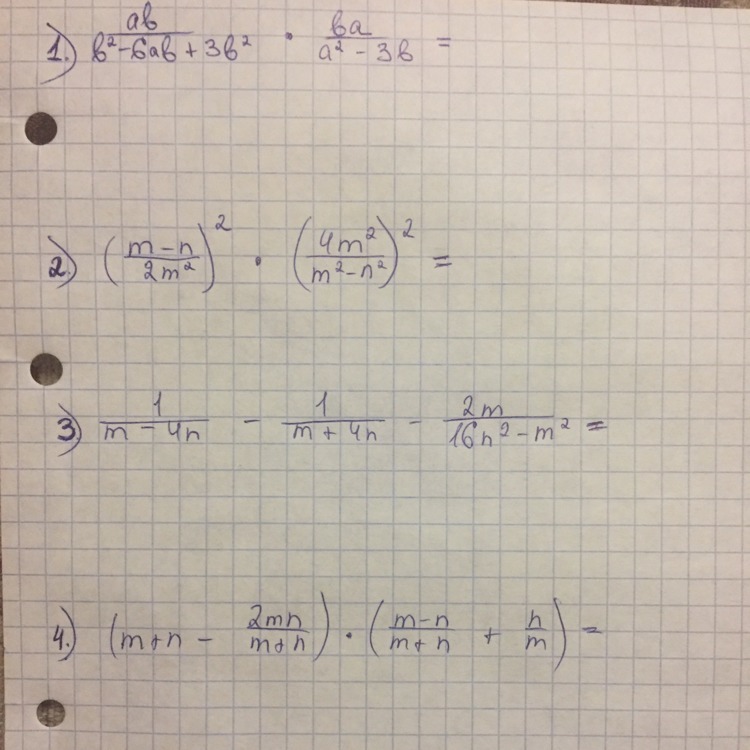 1.) ab/(b² - 6ab + 3b²) · ba/(a² - 3b) =
2.) ((m - n)/(2m²))² · (4m²/(m² - n²))² =
3.) 1/(m - 4n) - 1/(m + 4n) - 2m/(16n² - m²) =
4.) (m + n - 2mn/(m + n)) · ((m - n)/(m + n) + n/m) =